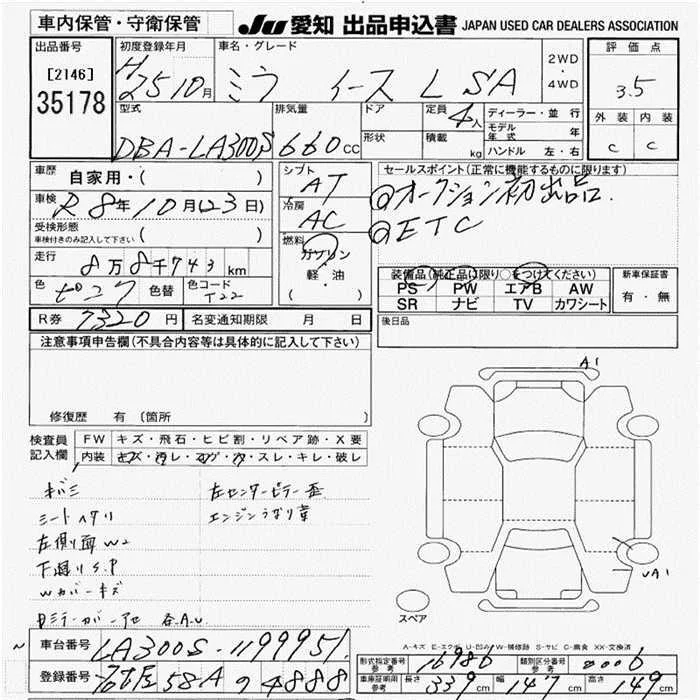 車内保管・守衛保管
JU 愛知 出品申込書 JAPAN USED CAR DEALERS ASSOCIATION
出品番号
[2146]
35178
初度登録年月
H25 10月
車名・グレード
ミラ イース L SA
2WD
・
4WD
評価点
3.5
外装 内装
C C
型式
DBA-LA300S
排気量
660cc
ドア
形状
定員
4人
積載
kg
ディーラー・並行
モデル年式 年
ハンドル 左・右
車歴
自家用・( )
車検
R 8年10月(23日)
受検形態
車検付きのみ記入して下さい ( )
走行
8万8千743km
色
ピンク
色替
色コード
T22
R券 7320円
名変通知期限 月 日
シフト
AT
冷房
AC
燃料
ガソリン
軽・油
( ・ )
セールスポイント(正常に機能するものに限ります)
◎オークション初出品.
◎ETC
装備品(純正品に限り○をつけてください)
PS PW エアB AW
SR ナビ TV カワシート
新車保証書
有・無
後日品
注意事項申告欄(不具合内容等は具体的に記入して下さい)
修復歴 有 (箇所
検査員
記入欄
FW キズ・飛石・ヒビ割・リペア跡・X要
内装 キズ・汚レ・コゲ・穴・スレ・キレ・破レ
キバミ
シートヘタリ
左側面W2
下廻りS.P
Wカバーキズ
左センターピラー歪
エンジンうなり葉
A1
A1
スペア
A-キズ E-エクボ U-凹み W-補修跡 S-サビ C-腐食 XX-交換済
車台番号
LA300S-1199951
登録番号
名古屋 58A 94888
形式指定番号
参考
16986
類別区分番号
参考
0006
車庫証明用
参考
長さ 339cm
幅 147cm
高さ 149cm